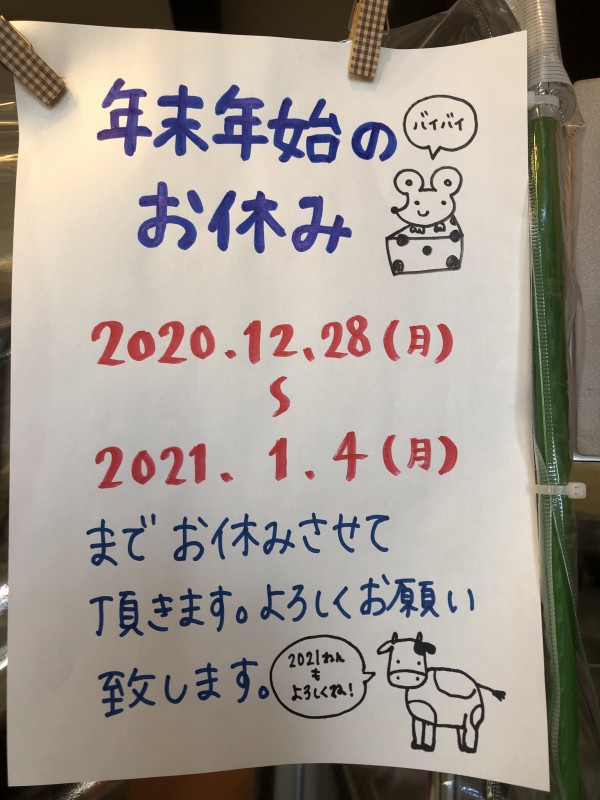 年末年始の
お休み
バイバイ
2020.12.28(月)
〜
2021.1.4(月)
まで お休みさせて
頂きます。よろしくお願い
致します。
2021ねん
も
よろしくね!